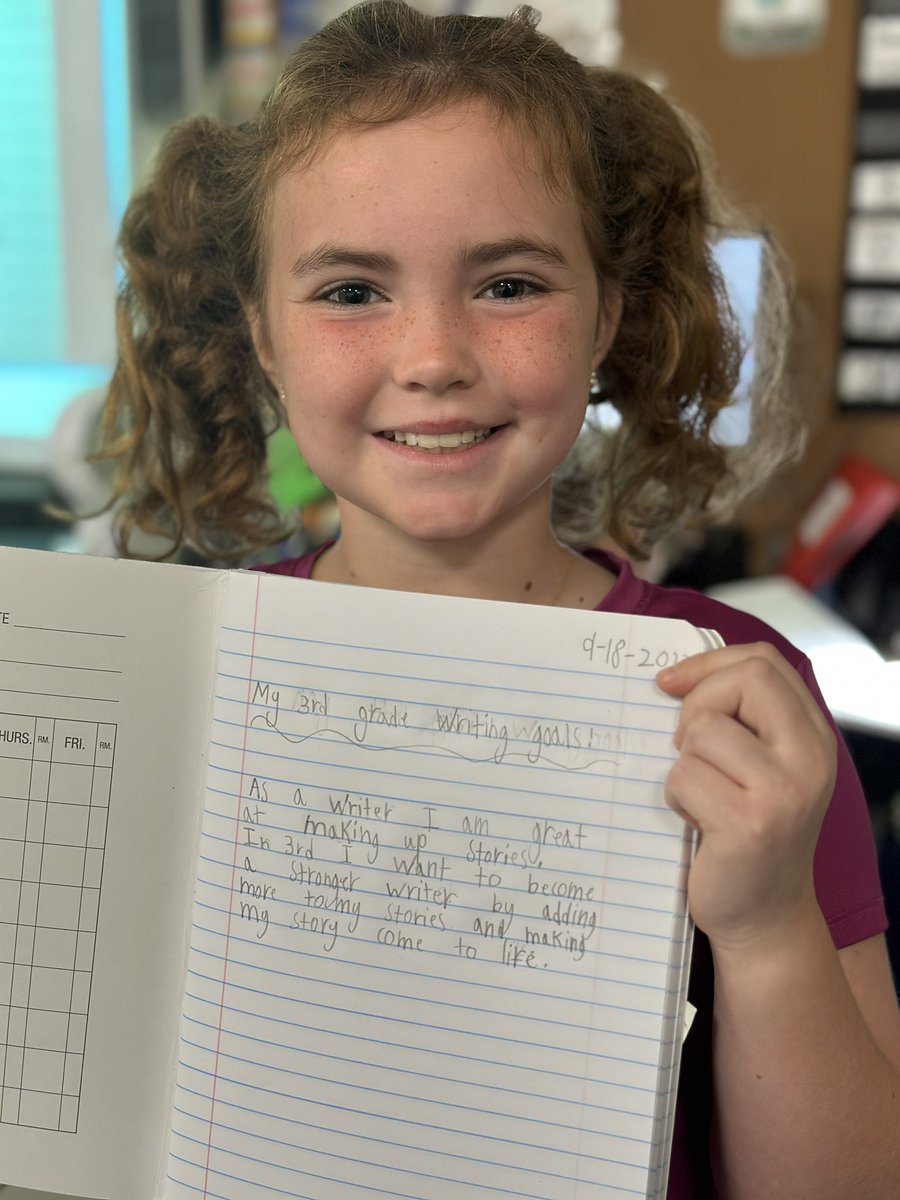 TE
HURS. RM. FRI. RM.
9-18-20
My 3rd grade Writing goals:
As a writer I am great
at making up stories.
In 3rd I want to become
a stronger writer by adding
more to my stories and making
my story come to life.